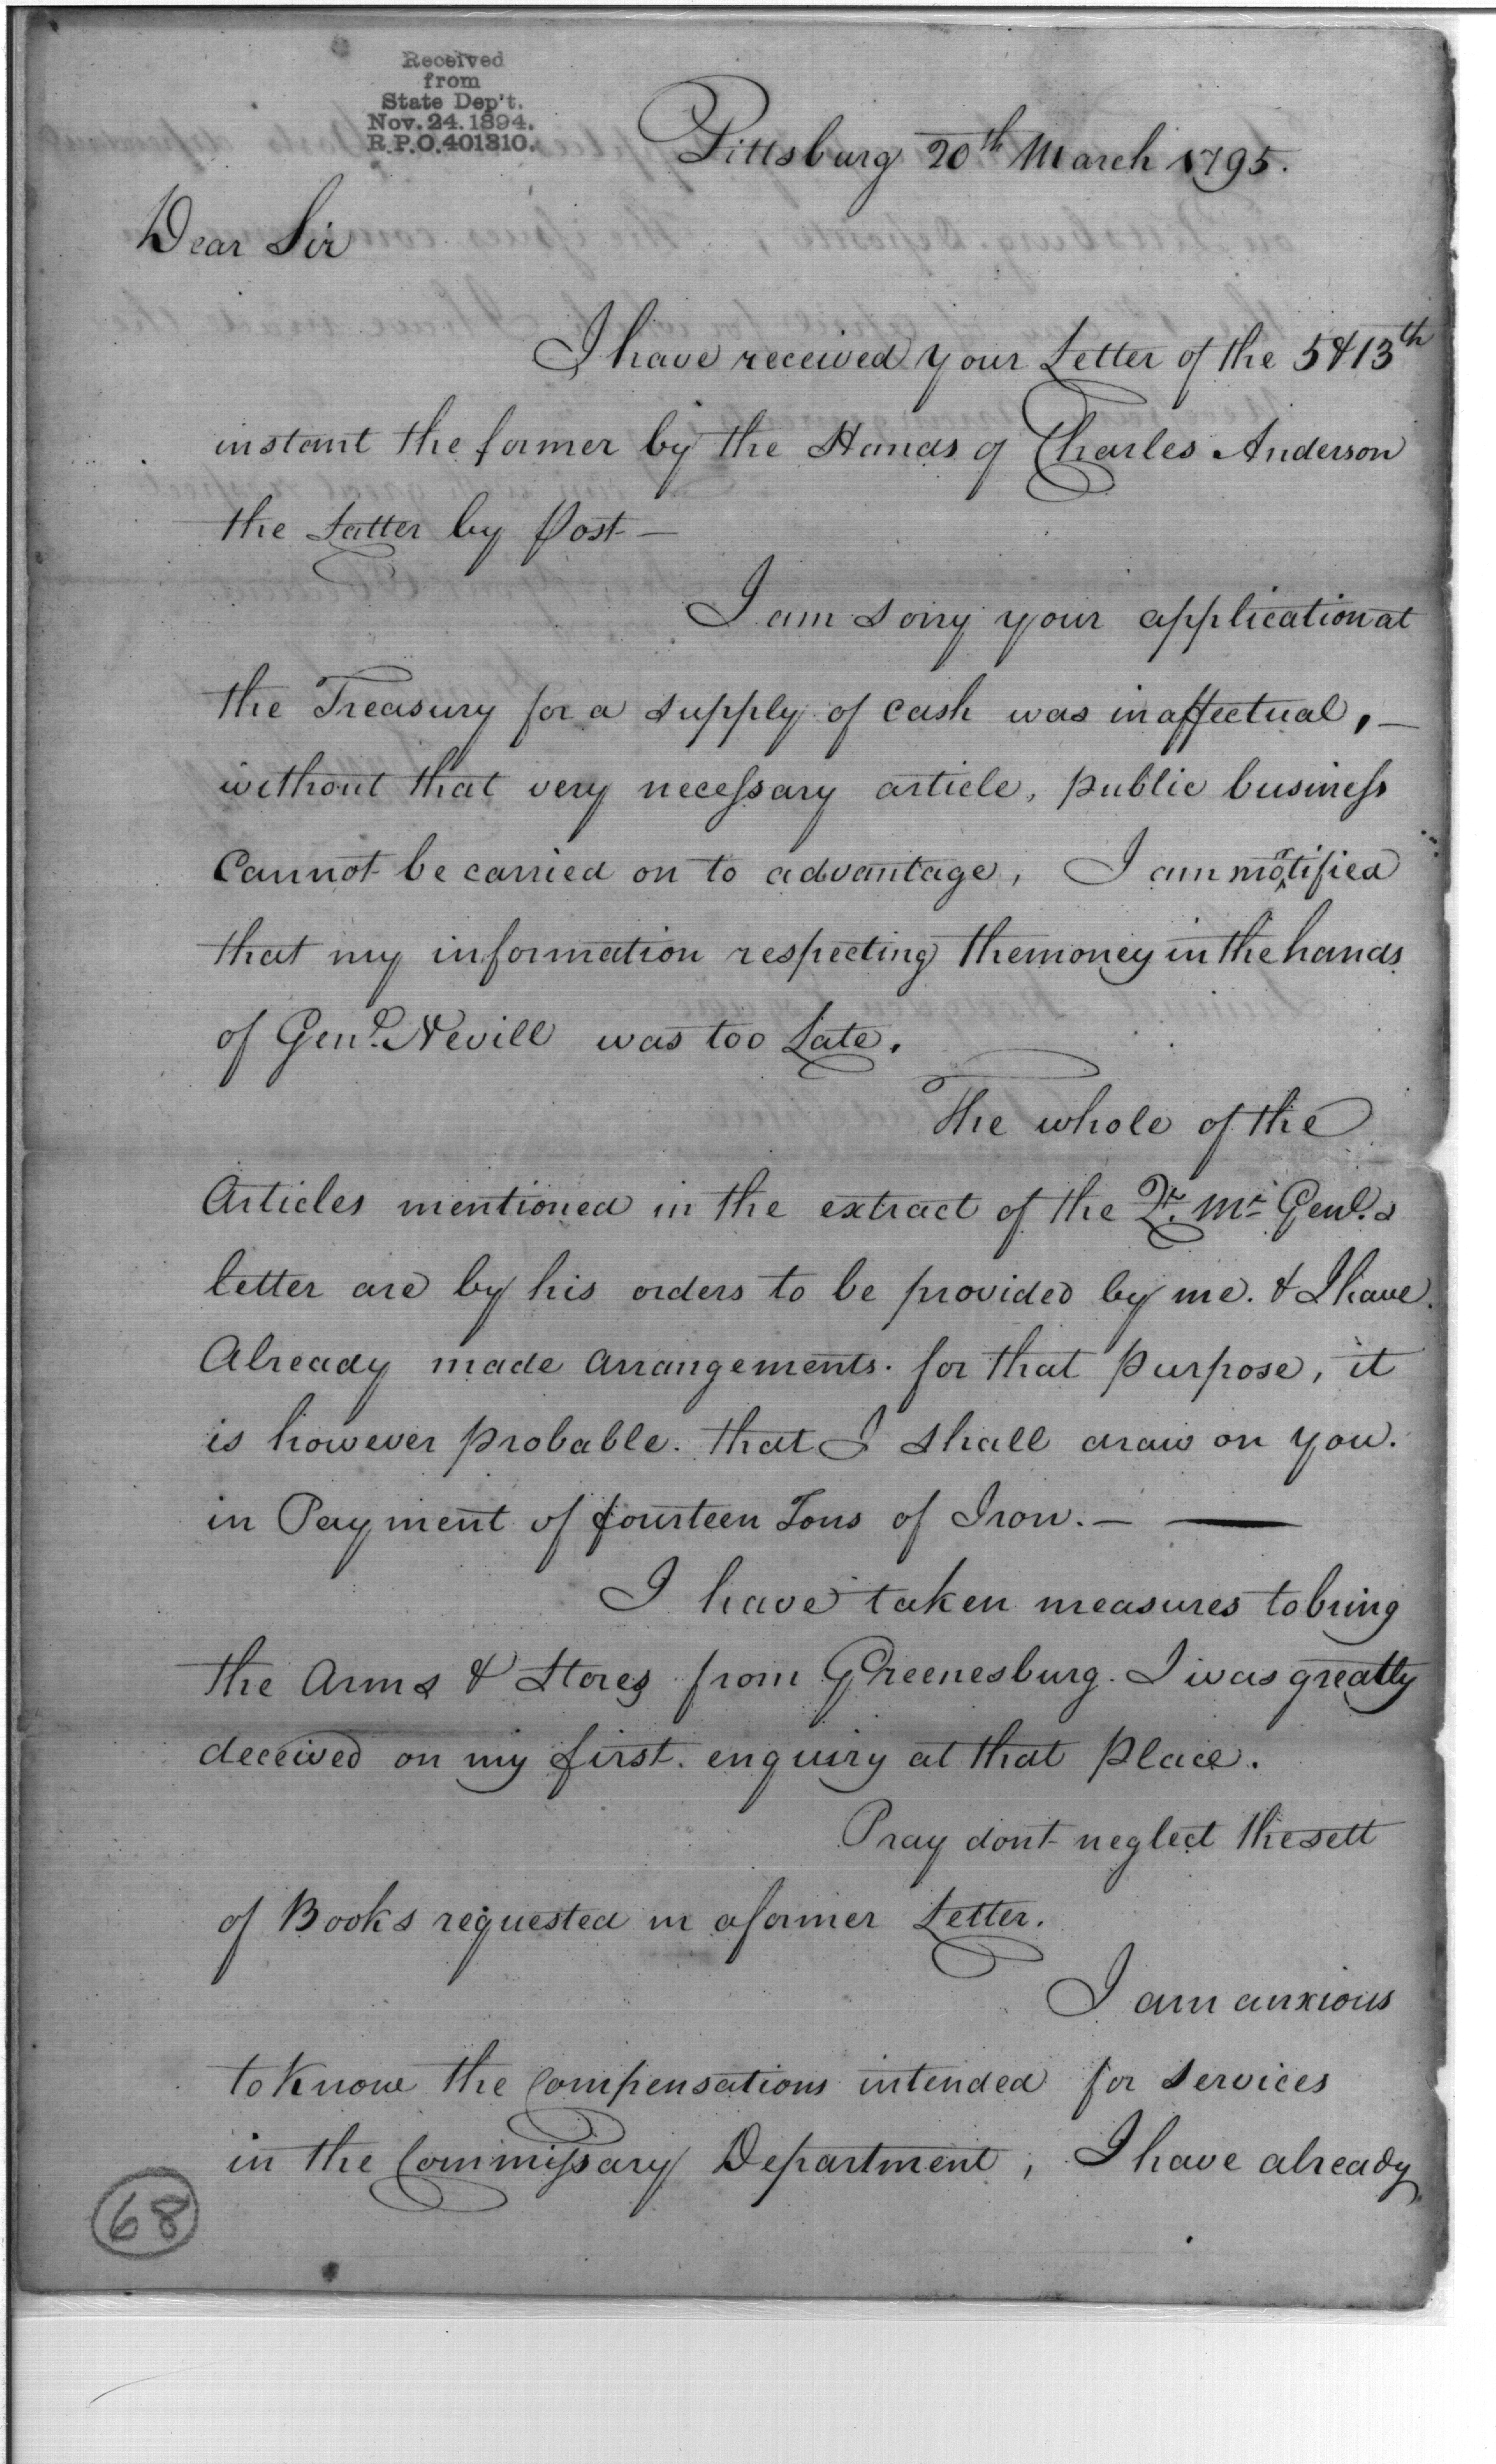 Received
from
State Dep't.
Nov. 24. 1894.
R.P.O. 401310.
Pittsburg 20th March 1795.
Dear Sir
I have received your Letter of the 5 & 13th
instant the former by the Hands of Charles Anderson
the Latter by Post —
I am sorry your application at
the Treasury for a supply of cash was inaffectual, —
without that very necessary article, public business
Cannot be carried on to advantage, I am mortified
that my information respecting the money in the hands
of Genl. Nevill was too Late.
The whole of the
Articles mentioned in the extract of the Qr. Mr Genl.s
letter are by his orders to be provided by me. & I have
Already made arrangements. for that purpose, it
is however probable. that I shall draw on you.
in Payment of fourteen Tons of Iron. — —
I have taken measures to bring
the Arms & Stores from Greenesburg. I was greatly
deceived on my first. enquiry at that Place.
Pray dont neglect the sett
of Books requested in a former Letter.
I am anxious
to Know the Compensations intended for services
in the Commissary Department, I have already
68